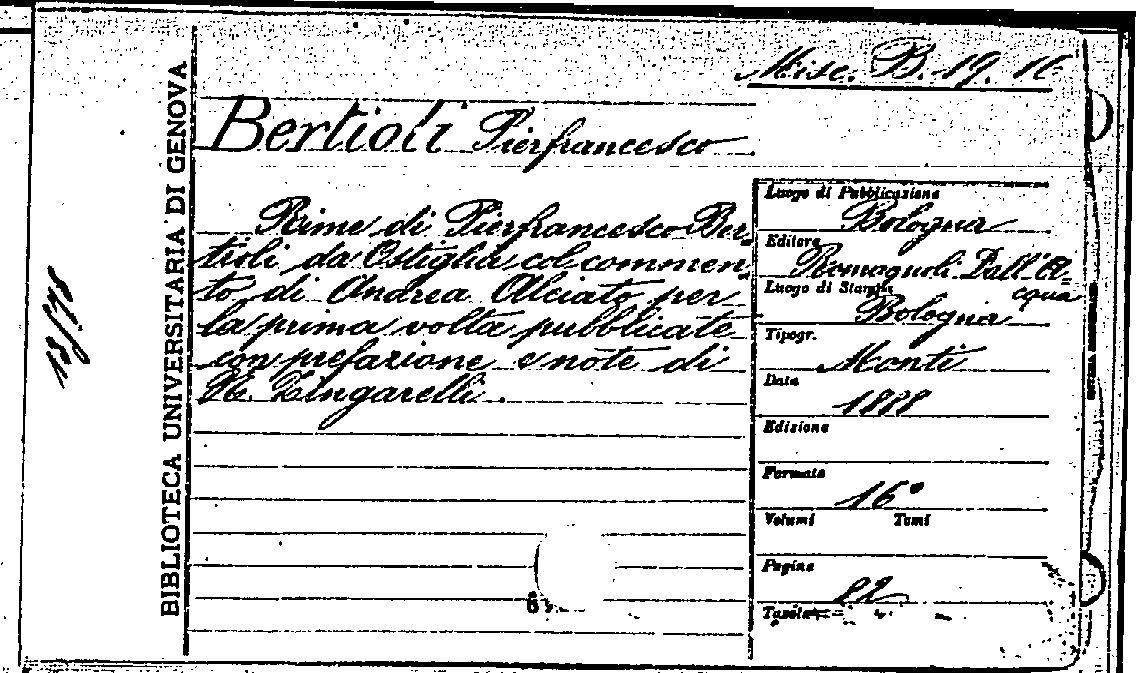 Misc. B. 19. 16
Bertioli Pierfrancesco
Rime di Pierfrancesco Ber=
tioli da Ostiglia col commen=
to di Andrea Alciato per
la prima volta pubblicate
con prefazione e note di
N. Zingarelli.
Luogo di Pubblicazione
Bologna
Editore
Romagnoli Dall'A=
cqua
Luogo di Stampa
Bologna
Tipogr.
Monti
Data
1888
Edizione
Formato
16°
Volumi Tomi
Pagine
82
Tavole
BIBLIOTECA UNIVERSITARIA DI GENOVA